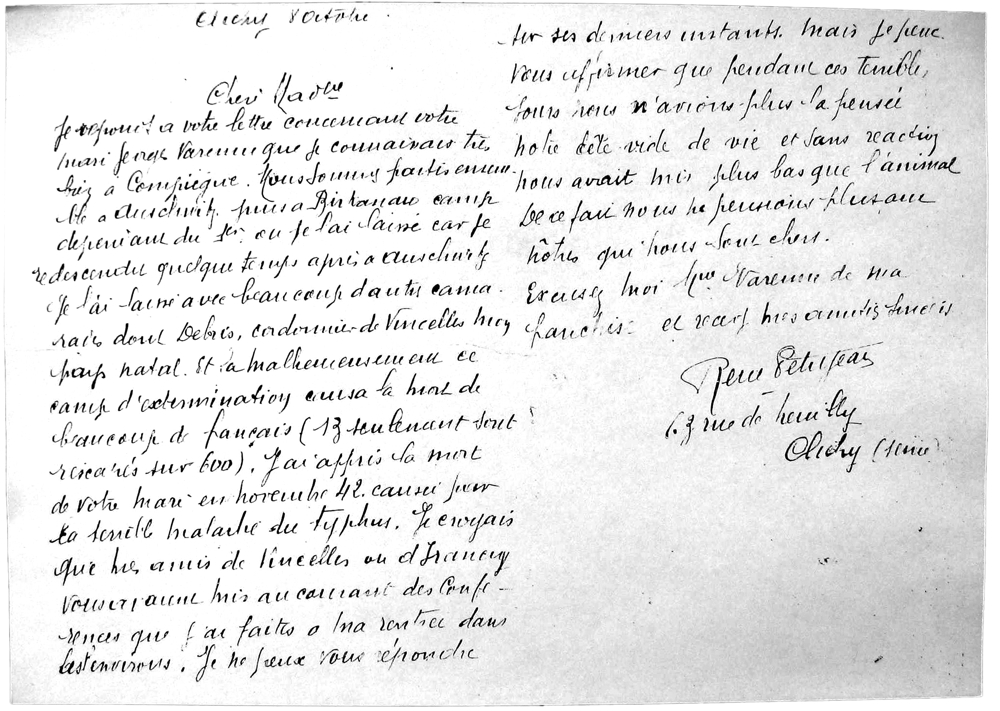 Clichy 8 Octobre.
Cher Madme
Je répond a votre lettre concernant votre
mari Georges Varenne que je connaissais très
bien a Compiègne. Nous sommes partis ensem-
ble a Auschwitz puis a Birkenau camp
dependant du 1er. ou je l'ai laissé car je
redescendit quelque temps après a Auschwitz
Je l'ai laissé avec beaucoup d'autres cama-
rades dont Debris, cordonnier de Vincelles mon
pays natal. Et la malheureusement ce
camp d'extermination causa la mort de
beaucoup de français (13 seulement sont
rescapés sur 600). J'ai appris la mort
de votre mari en novembre 42. causée par
la terrible maladie du typhus. Je croyais
que mes amis de Vincelles ou d'Irancy
vous aurait mis au courant des Confé-
rences que j'ai faites a ma rentrée dans
les environs. Je ne peux vous répondre
sur ses derniers instants. Mais je peux
vous affirmer que pendant ces terribles
jours nous n'avions plus la pensée
notre tête vide de vie et sans reaction
nous avait mis plus bas que l'animal
De ce fait nous ne pensions plus aux
nôtres qui nous sont chers.
Excusez moi Mme Varenne de ma
franchise et recevez mes amitiés sincères
René Petitjean
63 rue de Neuilly
Clichy (Seine)